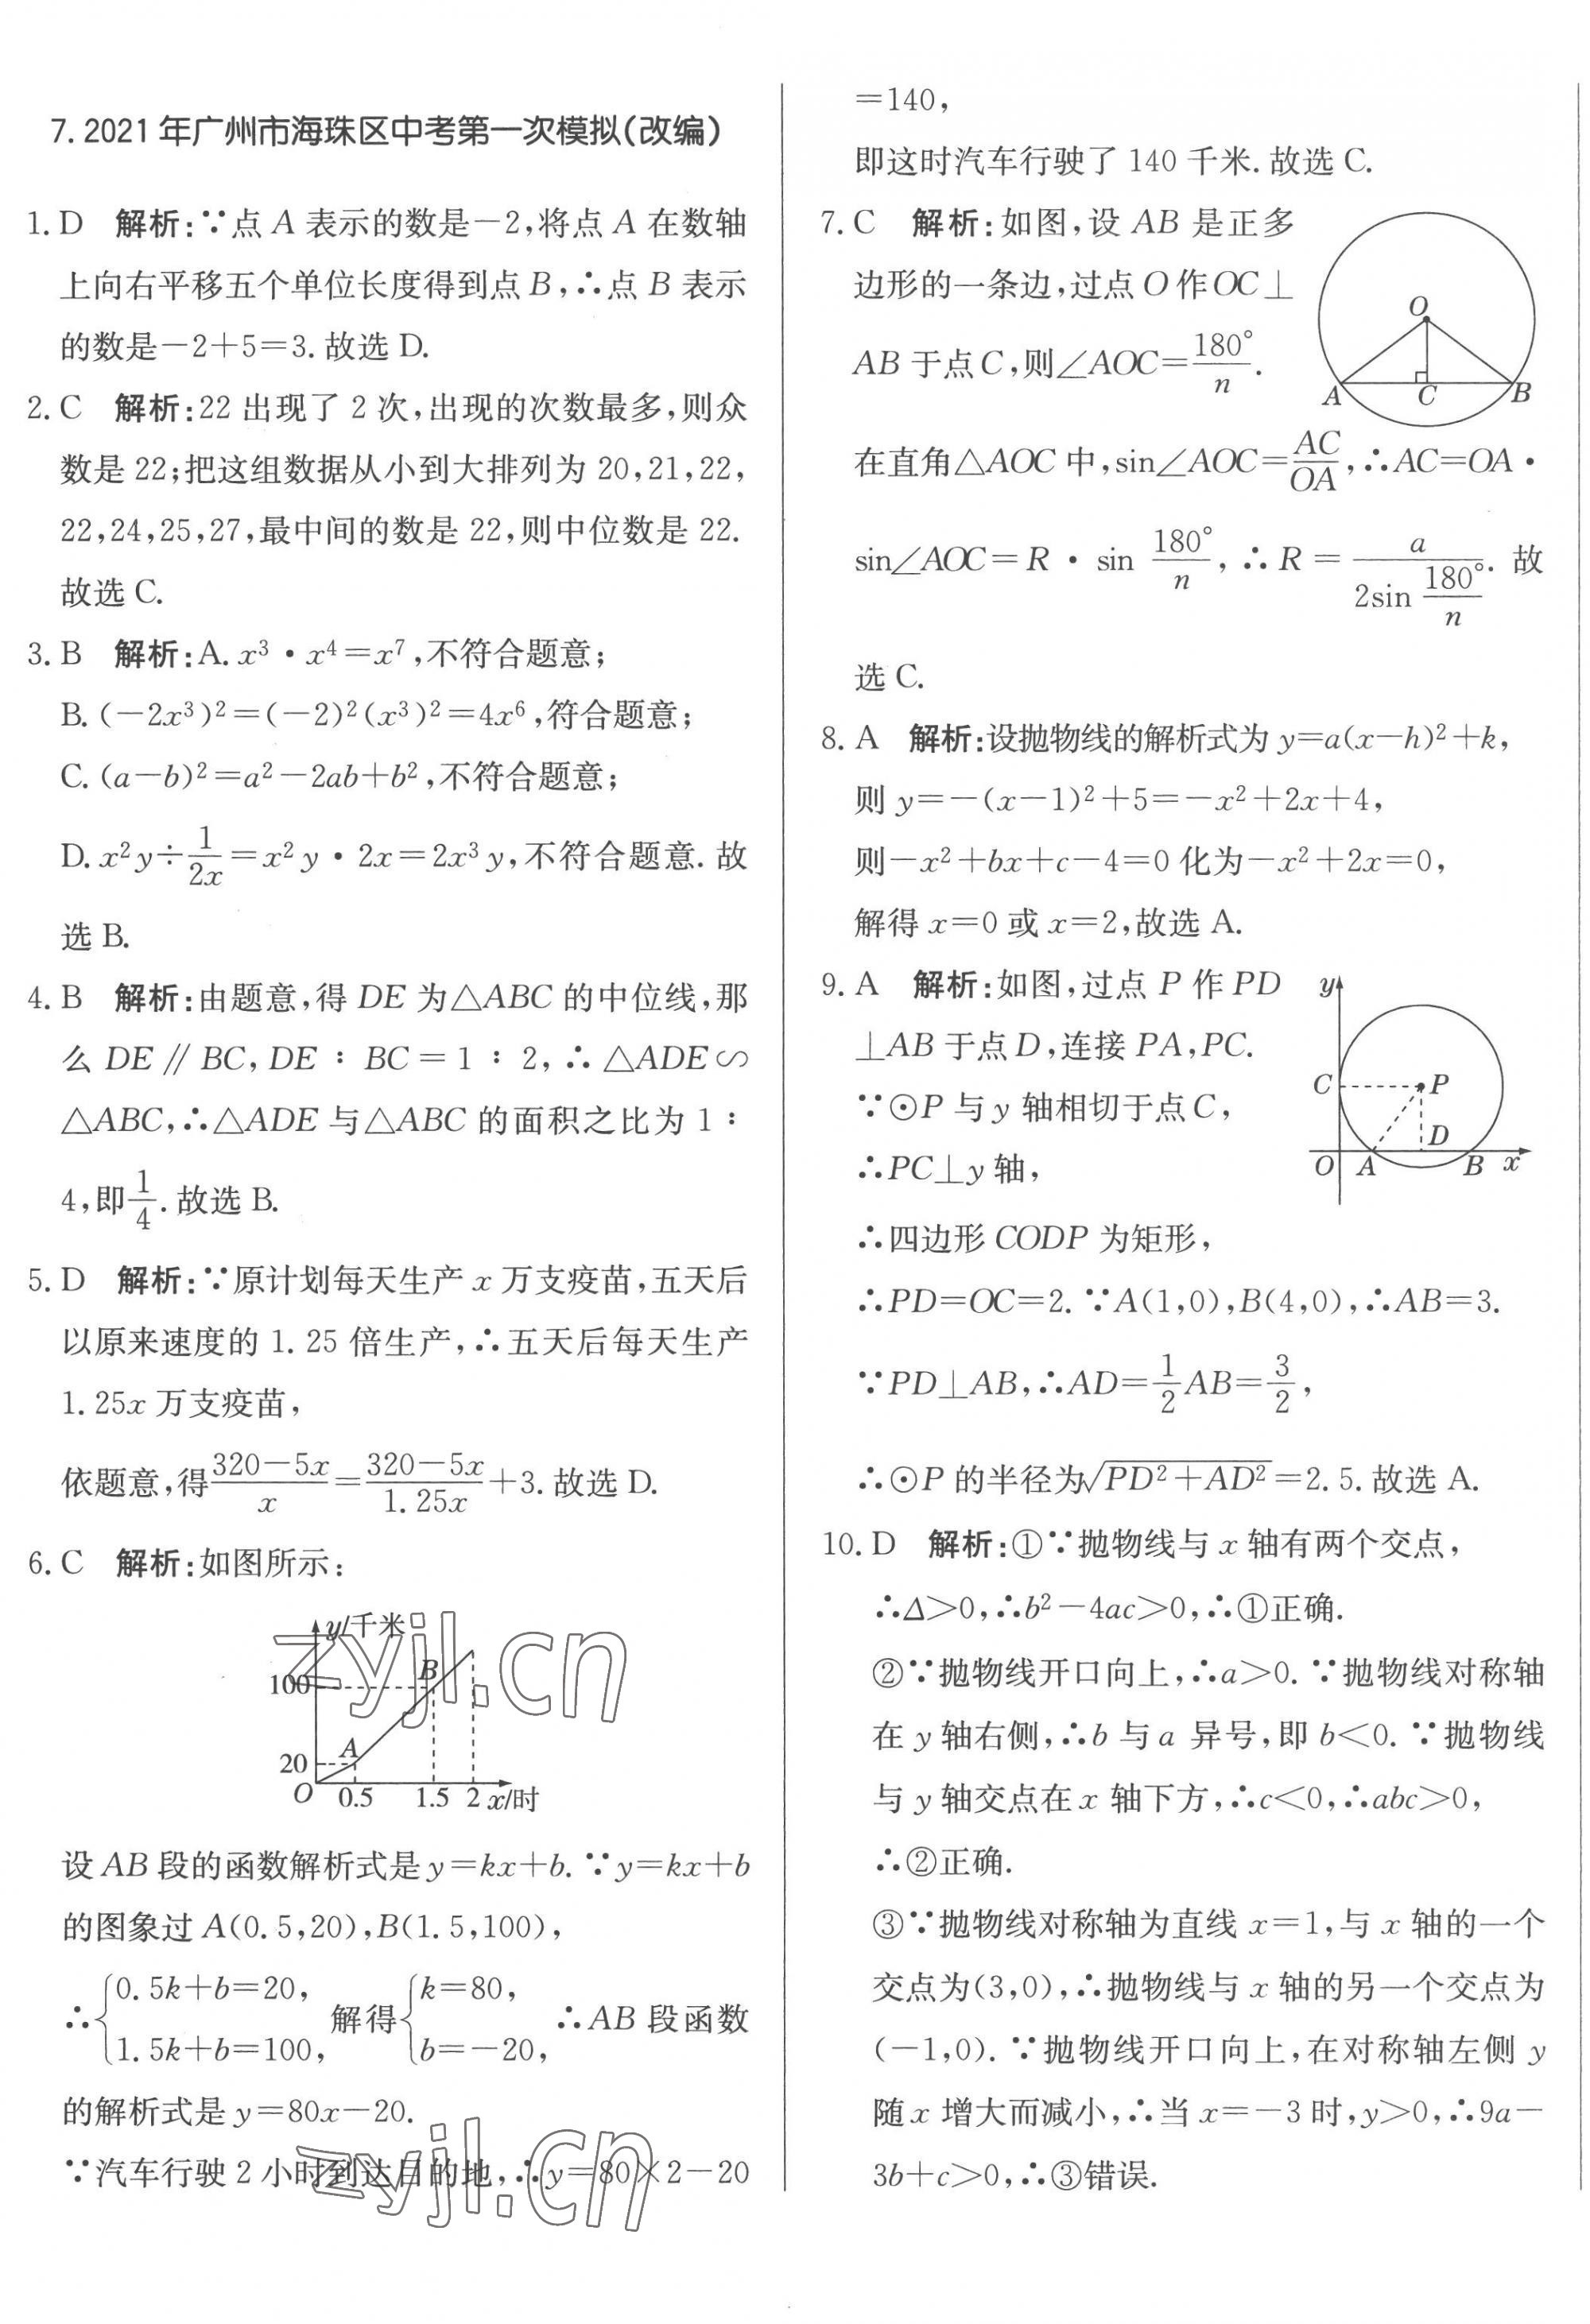 7. 2021 年广州市海珠区中考第一次模拟(改编)
1. D 解析:∵点 A 表示的数是-2,将点 A 在数轴
上向右平移五个单位长度得到点 B,∴点 B 表示
的数是-2+5=3. 故选 D.
2. C 解析:22 出现了 2 次,出现的次数最多,则众
数是 22;把这组数据从小到大排列为 20,21,22,
22,24,25,27,最中间的数是 22,则中位数是 22.
故选 C.
3. B 解析:A. x³・x⁴=x⁷,不符合题意;
B. (-2x³)²=(-2)²(x³)²=4x⁶,符合题意;
C. (a-b)²=a²-2ab+b²,不符合题意;
D. x²y÷1/2x=x²y・2x=2x³y,不符合题意. 故
选 B.
4. B 解析:由题意,得 DE 为△ABC 的中位线,那
么 DE∥BC, DE : BC = 1 : 2, ∴△ADE∽
△ABC,∴△ADE 与△ABC 的面积之比为 1 :
4,即1/4. 故选 B.
5. D 解析:∵原计划每天生产 x 万支疫苗,五天后
以原来速度的 1. 25 倍生产,∴五天后每天生产
1. 25x 万支疫苗,
依题意,得(320-5x)/x=(320-5x)/1. 25x+3. 故选 D.
6. C 解析:如图所示:
y/千米
100
B
20
A
O 0.5 1.5 2 x/时
zyjl.cn
设 AB 段的函数解析式是 y=kx+b. ∵y=kx+b
的图象过 A(0. 5,20),B(1. 5,100),
∴{0. 5k+b=20, 1. 5k+b=100, 解得{k=80, b=-20, ∴AB 段函数
的解析式是 y=80x-20.
∵汽车行驶 2 小时到达目的地,∴y=80×2-20
zyjl.cn
=140,
即这时汽车行驶了 140 千米. 故选 C.
7. C 解析:如图,设 AB 是正多
边形的一条边,过点 O 作 OC⊥
AB 于点 C,则∠AOC=180°/n.
O
A C B
在直角△AOC 中,sin∠AOC=AC/OA,∴AC=OA・
sin∠AOC=R・sin 180°/n,∴R=a/(2sin 180°/n). 故
选 C.
8. A 解析:设抛物线的解析式为 y=a(x-h)²+k,
则 y=-(x-1)²+5=-x²+2x+4,
则-x²+bx+c-4=0 化为-x²+2x=0,
解得 x=0 或 x=2,故选 A.
9. A 解析:如图,过点 P 作 PD
⊥AB 于点 D,连接 PA,PC.
∵⊙P 与 y 轴相切于点 C,
∴PC⊥y 轴,
y
C P
D
O A B x
∴四边形 CODP 为矩形,
∴PD=OC=2. ∵A(1,0),B(4,0),∴AB=3.
∵PD⊥AB,∴AD=1/2AB=3/2,
∴⊙P 的半径为√(PD²+AD²)=2. 5. 故选 A.
10. D 解析:①∵抛物线与 x 轴有两个交点,
∴Δ>0,∴b²-4ac>0,∴①正确.
②∵抛物线开口向上,∴a>0. ∵抛物线对称轴
在 y 轴右侧,∴b 与 a 异号,即 b<0. ∵抛物线
与 y 轴交点在 x 轴下方,∴c<0,∴abc>0,
∴②正确.
③∵抛物线对称轴为直线 x=1,与 x 轴的一个
交点为(3,0),∴抛物线与 x 轴的另一个交点为
(-1,0). ∵抛物线开口向上,在对称轴左侧 y
随 x 增大而减小,∴当 x=-3 时,y>0,∴9a-
3b+c>0,∴③错误.